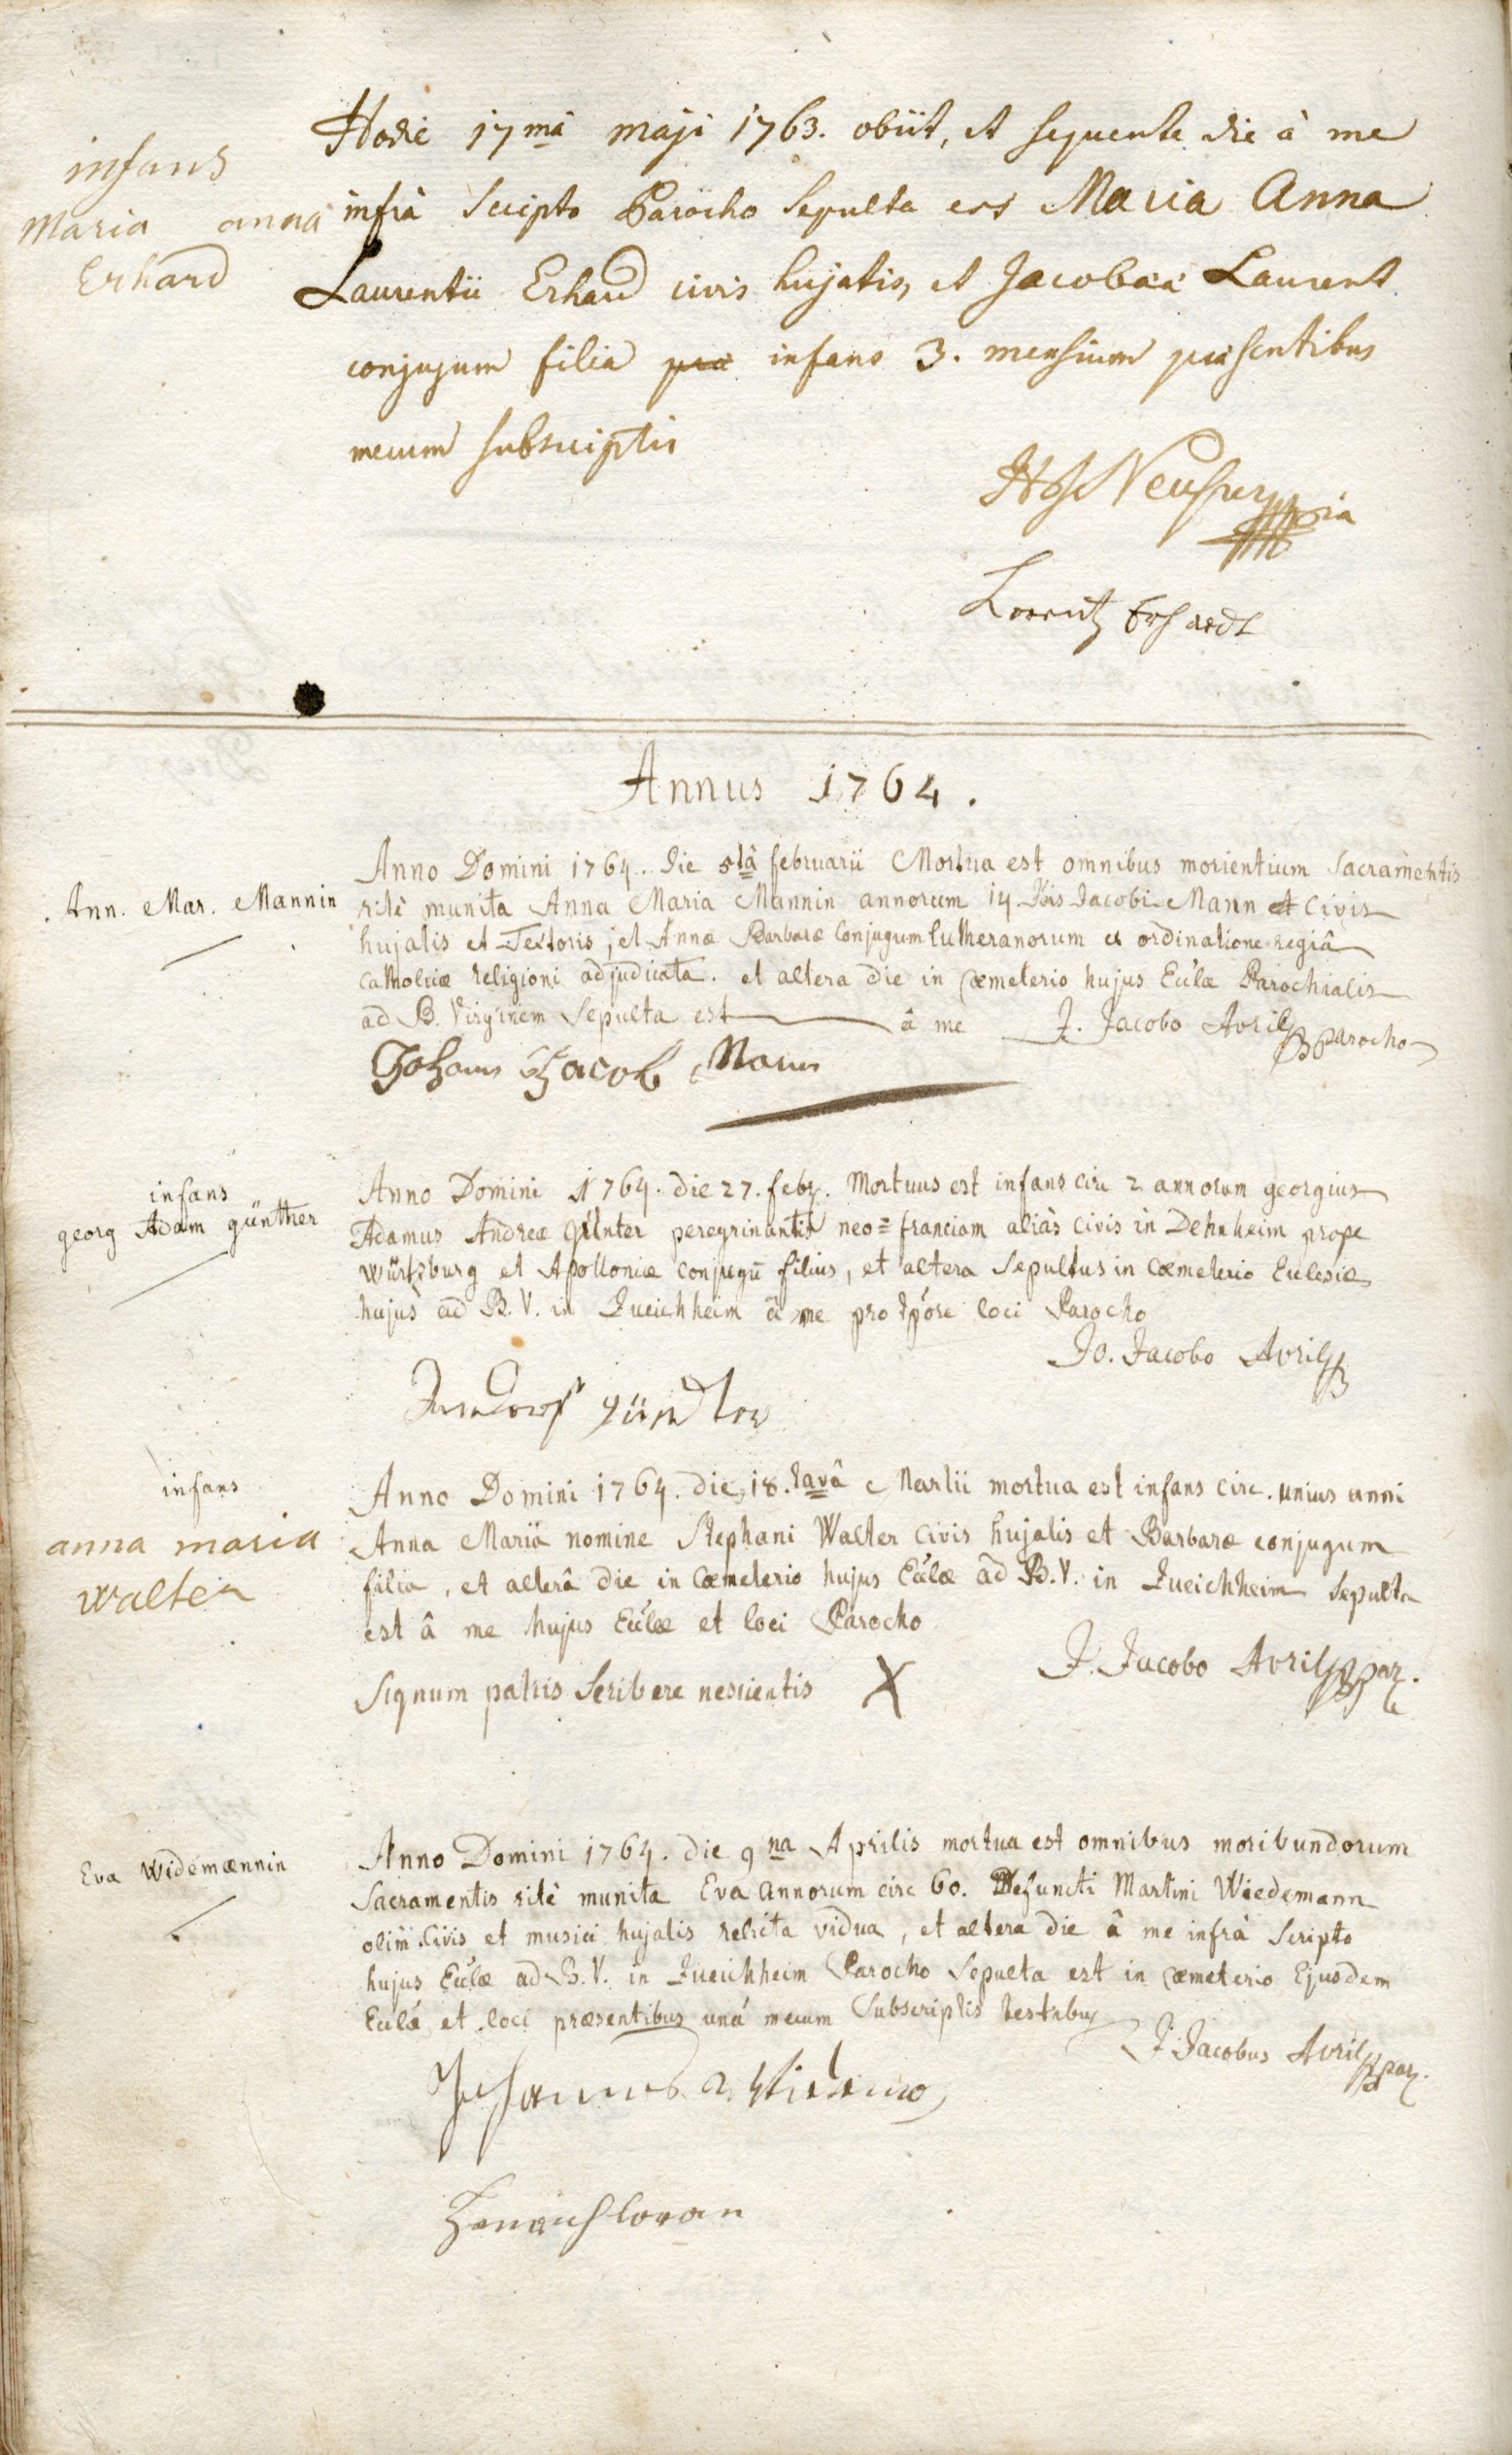 infans
Maria anna
Erhard
Hodie 17mâ maji 1763. obiit, et sequente die à me
infrà scripto Parocho sepulta est Maria Anna
Laurentii Erhard civis hujatis, et Jacobææ Laurent
conjugum filia præ infans 3. mensium præsentibus
mecum subscriptis
Lorentz Erhardt
Annus 1764.
Ann. Mar. Mannin
Anno Domini 1764. die 5tâ februarii Mortua est omnibus morientium Sacramentis
ritè munita Anna Maria Mannin annorum 14 Jacobi Mann et Civis
hujatis et Textoris, et Annæ Barbaræ Conjugum lutheranorum ex ordinatione regiâ
catholicæ religioni adjudicata. et altera die in Cœmeterio hujus Eclæ Parochialis
ad B. Virginem Sepulta est â me J. Jacobo Avril Parocho
Johans Jacob Mann
infans
georg Adam günther
Anno Domini 1764. die 27. febr. Mortuus est infans circ 2 annorum georgius
Adamus Andreæ günter peregrinantis neo=franciam aliàs civis in Dehnheim prope
Würtzburg et Apolloniæ conjugū filius, et altera Sepultus in Cœmeterio Ecclesiæ
hujus ad B. V. in Queichheim â me pro tpóre loci Parocho
Jo. Jacobo Avril
günter
infans
anna maria
walter
Anno Domini 1764. die 18.tavâ Martii mortua est infans circ. unius anni
Anna Maria nomine Stephani Walter Civis hujatis et Barbaræ conjugum
filia, et alterâ die in Cœmeterio hujus Eclæ ad B. V. in Queichheim Sepulta
est â me hujus Eclæ et loci Parocho
J. Jacobo Avril par.
Signum patris Scribere nescientis X
Eva Widemænnin
Anno Domini 1764. die 9na Aprilis mortua est omnibus moribundorum
Sacramentis ritè munita Eva annorum circ 60. Defuncti Martini Wiedemann
olim Civis et musici hujatis relicta vidua, et altera die â me infrà Scripto
hujus Eclæ ad B. V. in Queichheim Parocho Sepulta est in Cœmeterio Ejusdem
Eclæ et loci præsentibus unâ mecum Subscriptis testibus
J. Jacobus Avril par.
Johannes